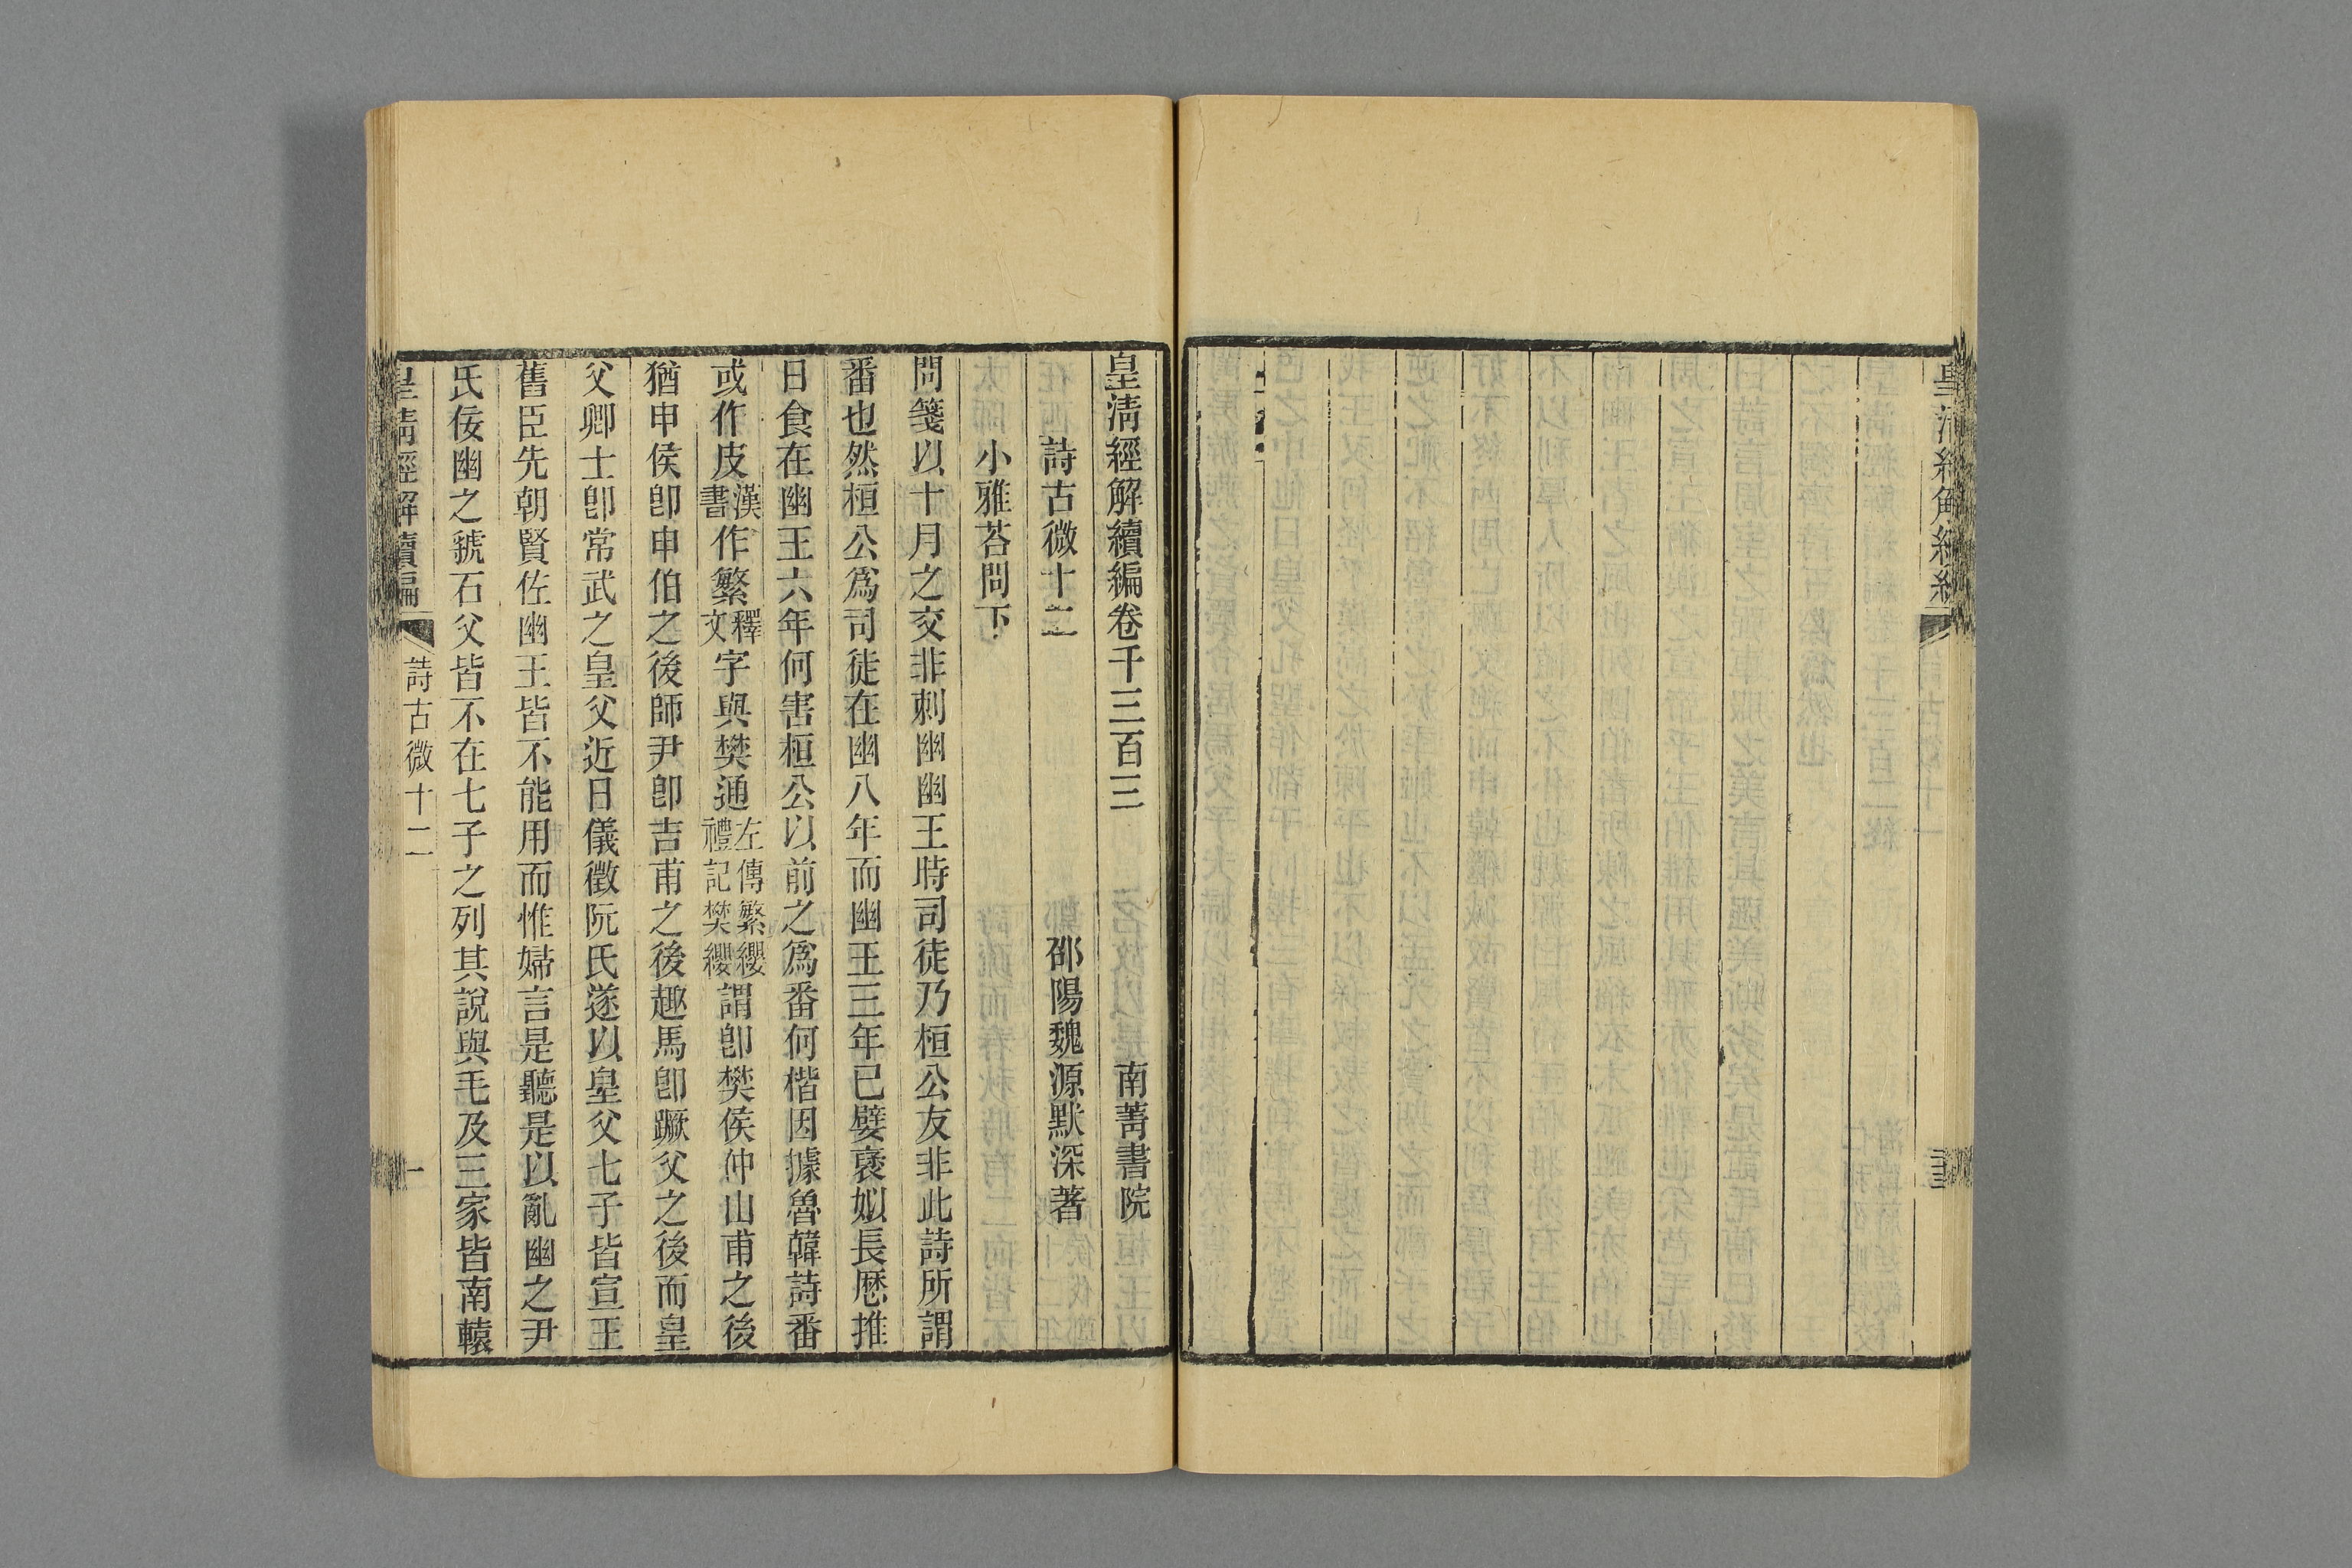 皇清經解續編
皇清經解續編卷千三百三 南菁書院
詩古微十二 邵陽魏源默深著
小雅荅問下
問箋以十月之交非刺幽幽王時司徒乃桓公友非此詩所謂
番也然桓公爲司徒在幽八年而幽王三年已嬖褒姒長厯推
日食在幽王六年何害桓公以前之爲番何楷因據魯韓詩番
或作皮漢書作繁釋文字與樊通左傳繁纓禮記樊纓謂卽樊侯仲山甫之後
猶申侯卽申伯之後師尹卽吉甫之後趣馬卽蹶父之後而皇
父卿士卽常武之皇父近日儀徵阮氏遂以皇父七子皆宣王
舊臣先朝賢佐幽王皆不能用而惟婦言是聽是以亂幽之尹
氏佞幽之虢石父皆不在七子之列其說與毛及三家皆南轅
皇清經解續編 詩古微十二 一